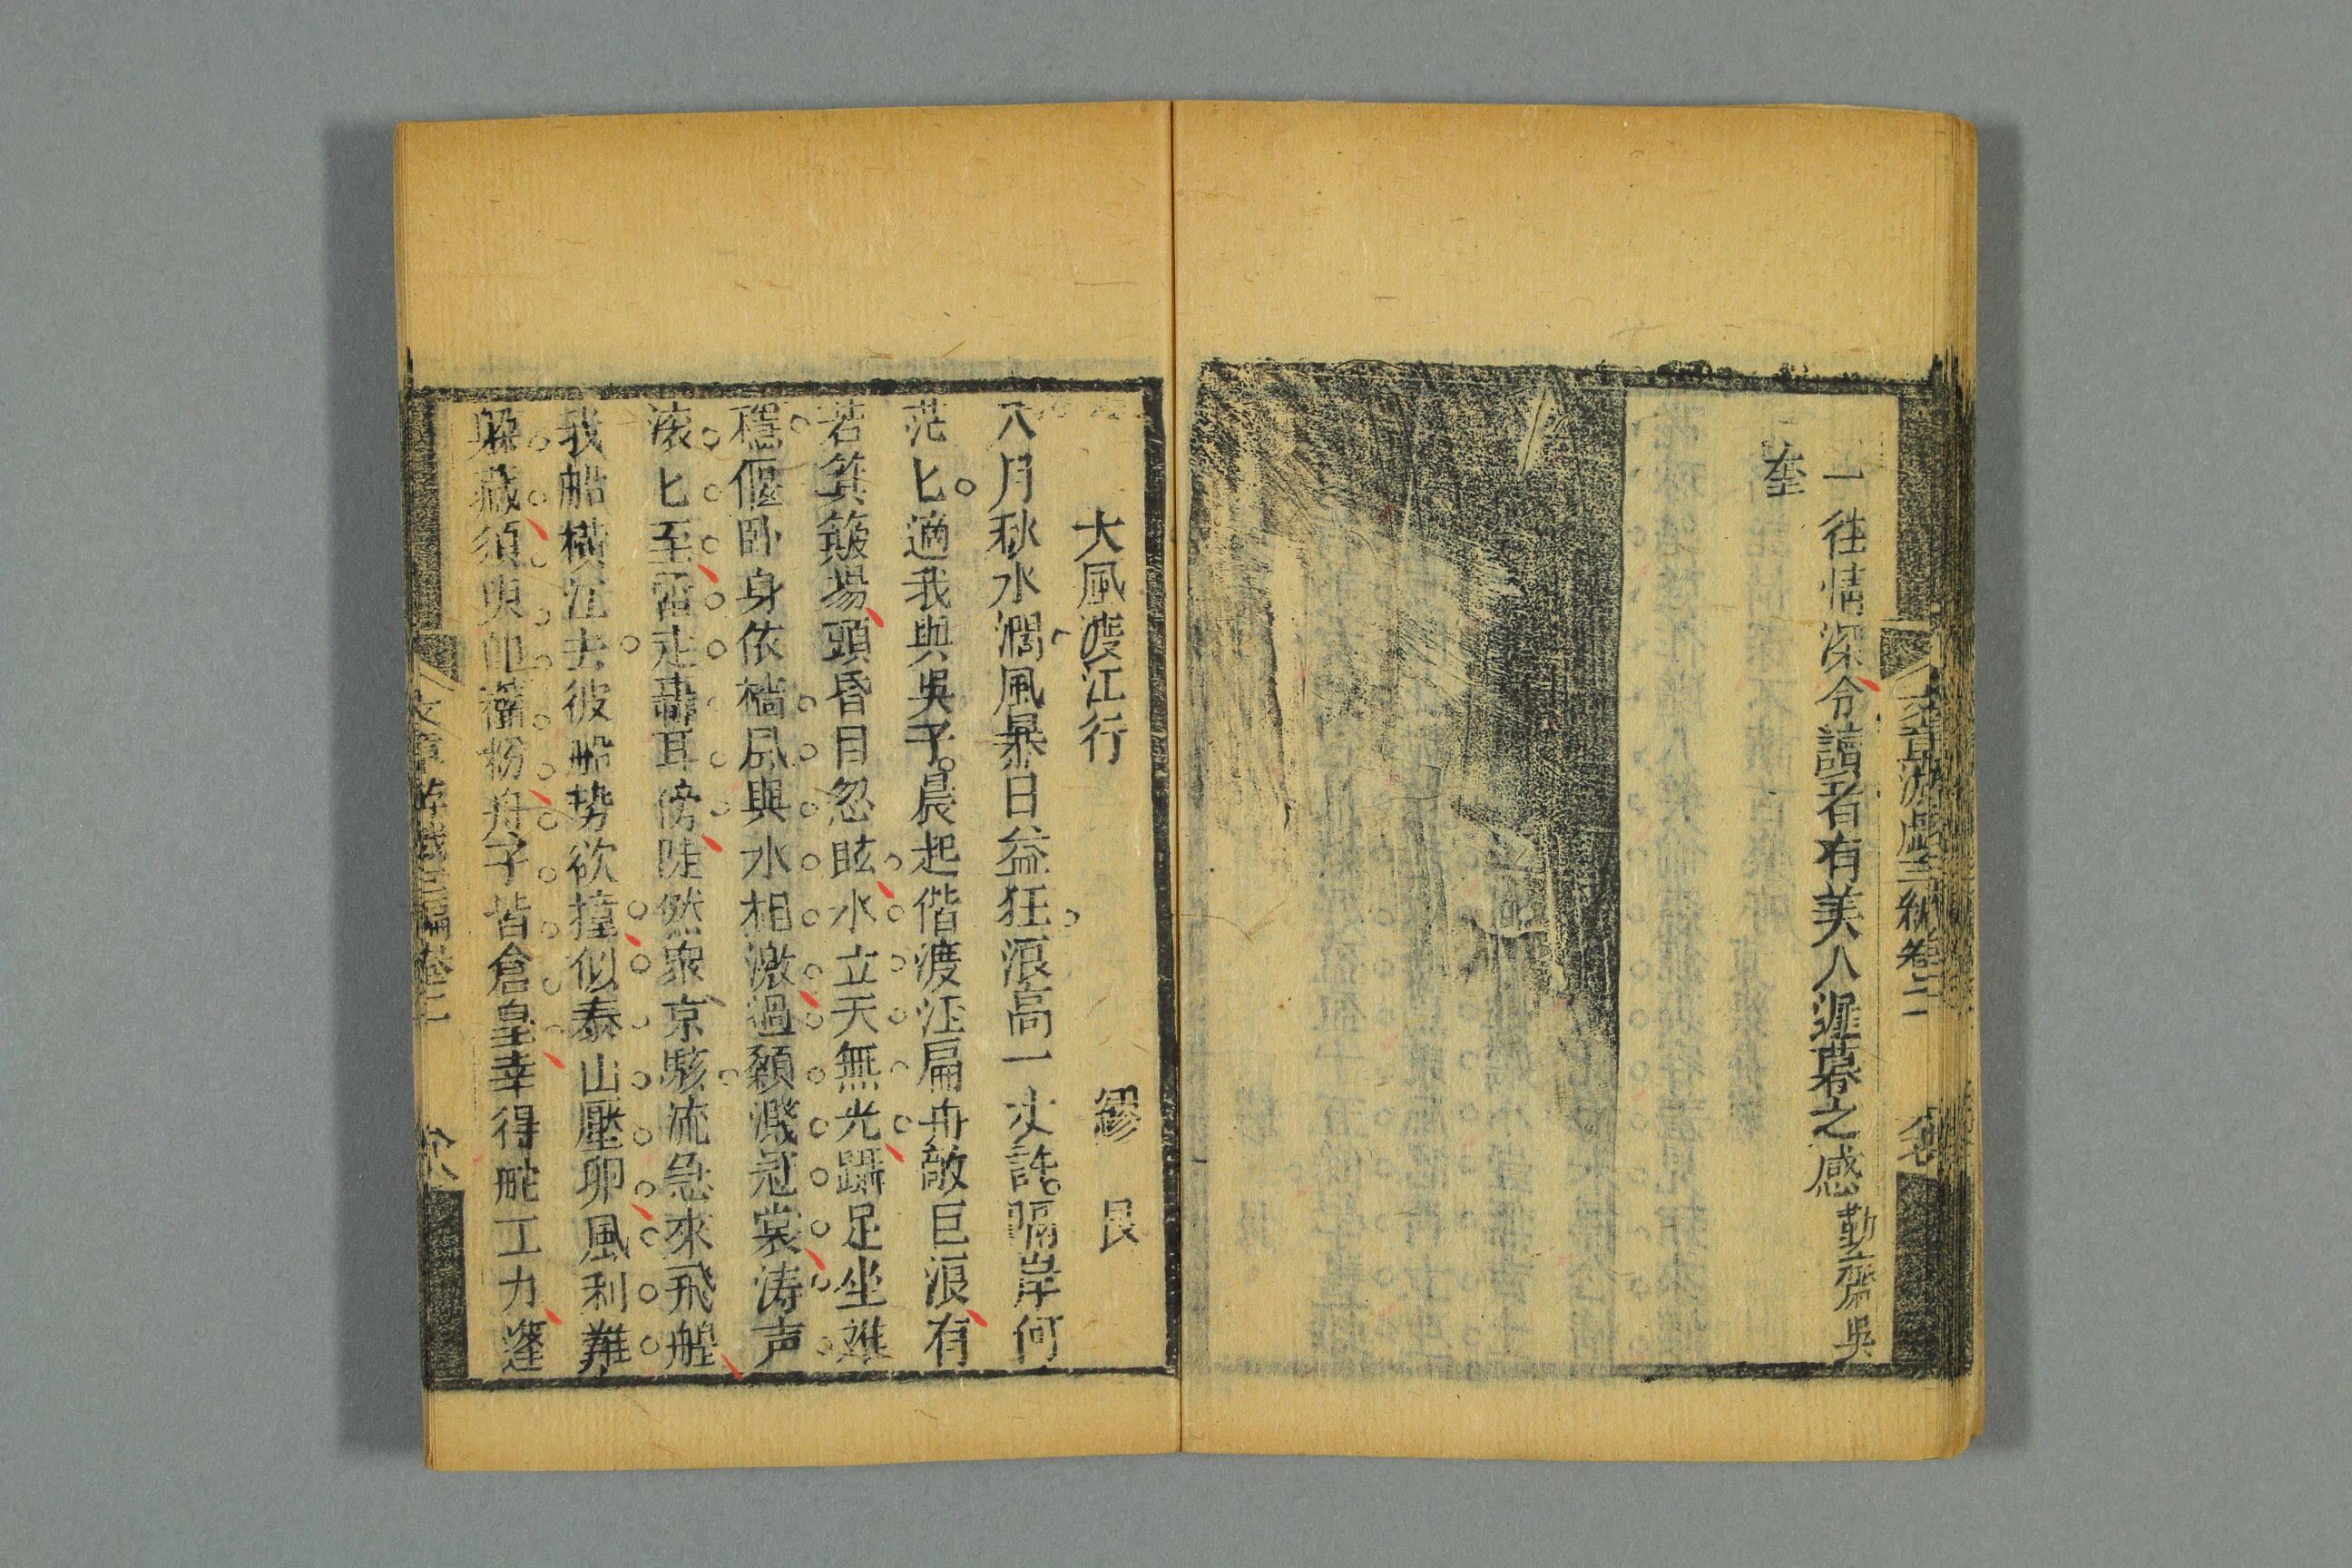 文章游戲三編卷二
一往情深令讀者有美人遲暮之感勤齋吳
奎
大風渡江行 繆艮
八月秋水濶風暴日益狂浪高一丈許隔岸何
茫匕適我與吳子晨起偕渡江扁舟敵巨浪有
若箕簸揚頭昏目忽眩水立天無光躡足坐難
穩偃卧身依檣風與水相激過顙濺冠裳涛声
滚匕至雷走轟耳傍陡然衆京駭流急來飛艎
我船橫江去彼船势欲撞似泰山壓卵風利難
躲藏須臾即䉽粉舟子皆倉皇幸得舵工力篷
文章游戲三編卷二